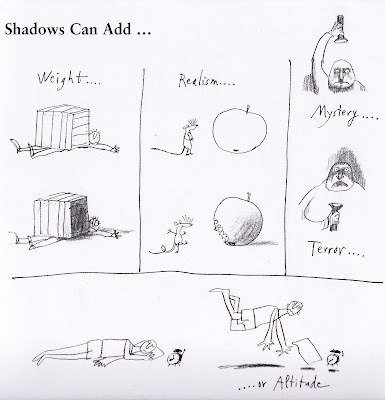 Shadows Can Add ...
Weight....
Realism....
Mystery....
Terror....
....or Altitude